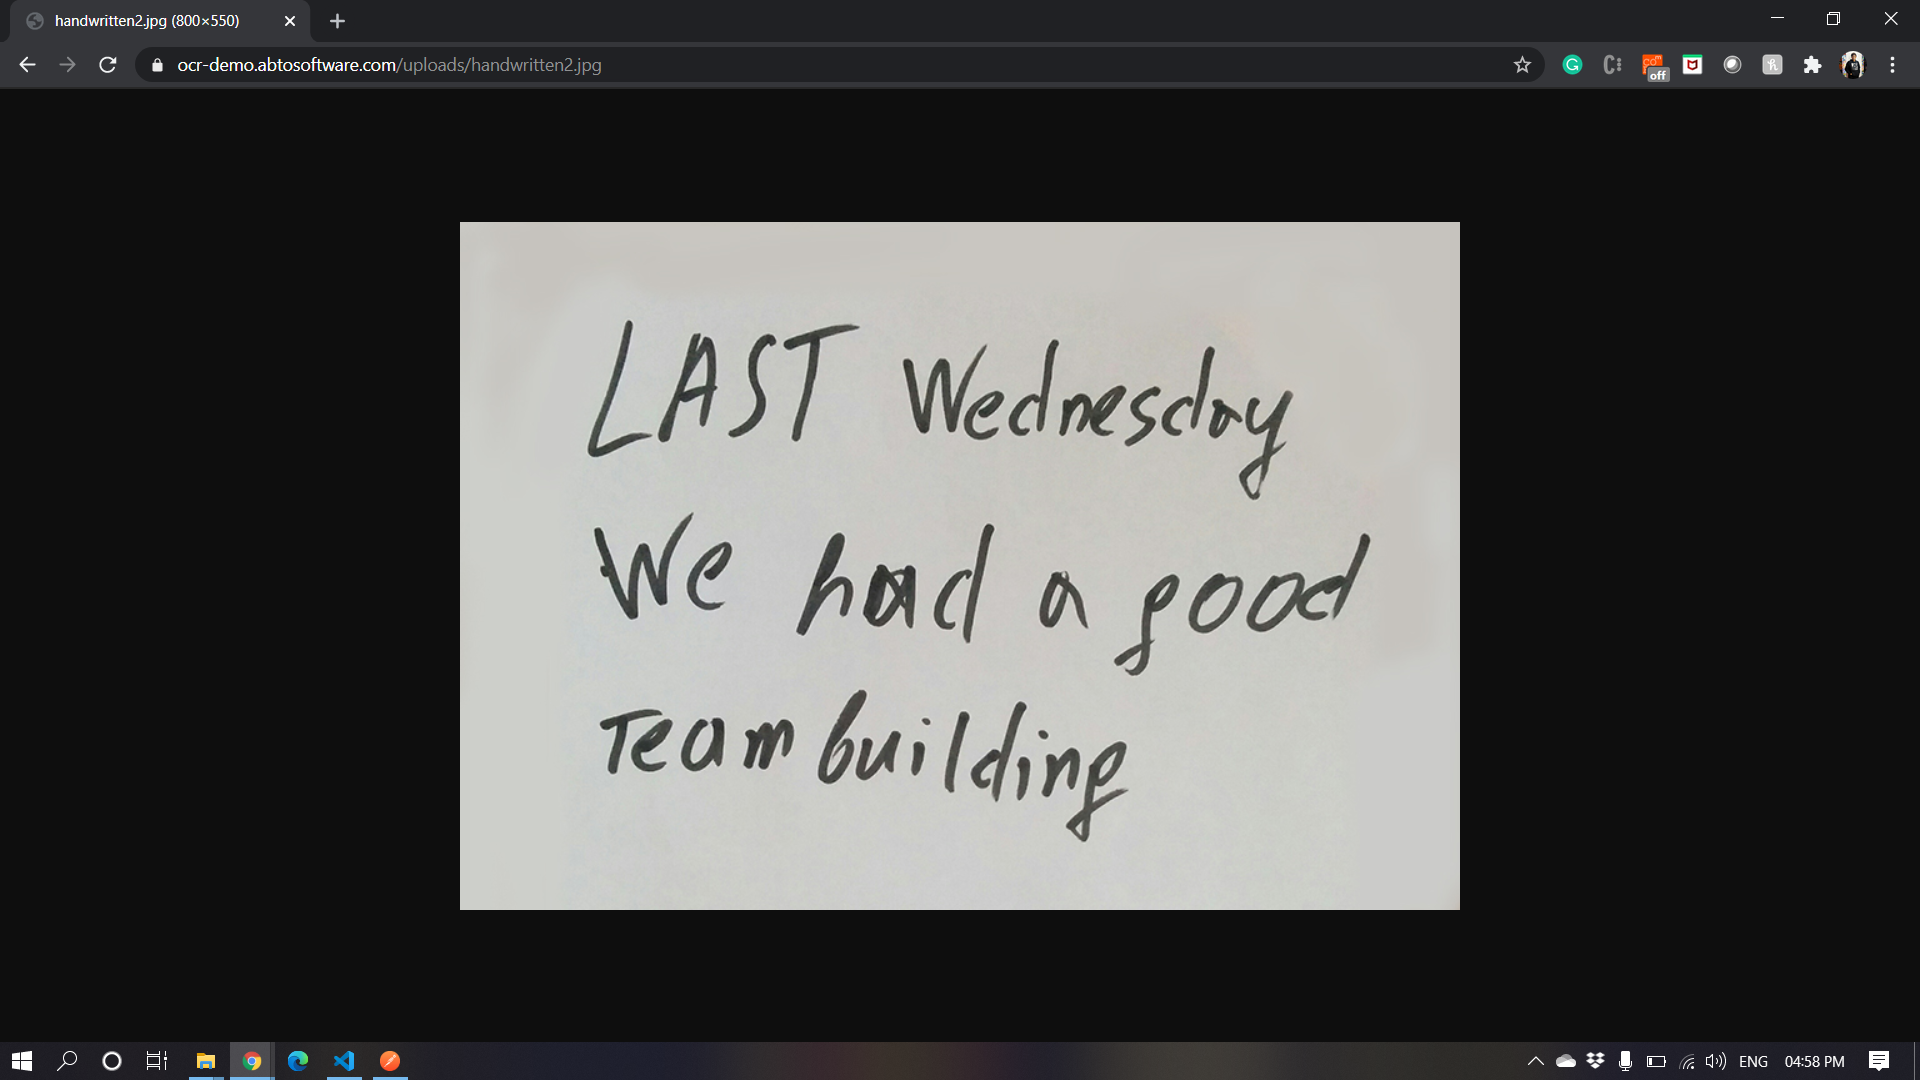 handwritten2.jpg (800×550)
ocr-demo.abtosoftware.com/uploads/handwritten2.jpg
off
LAST Wednesday
We had a good
Team building
ENG 04:58 PM